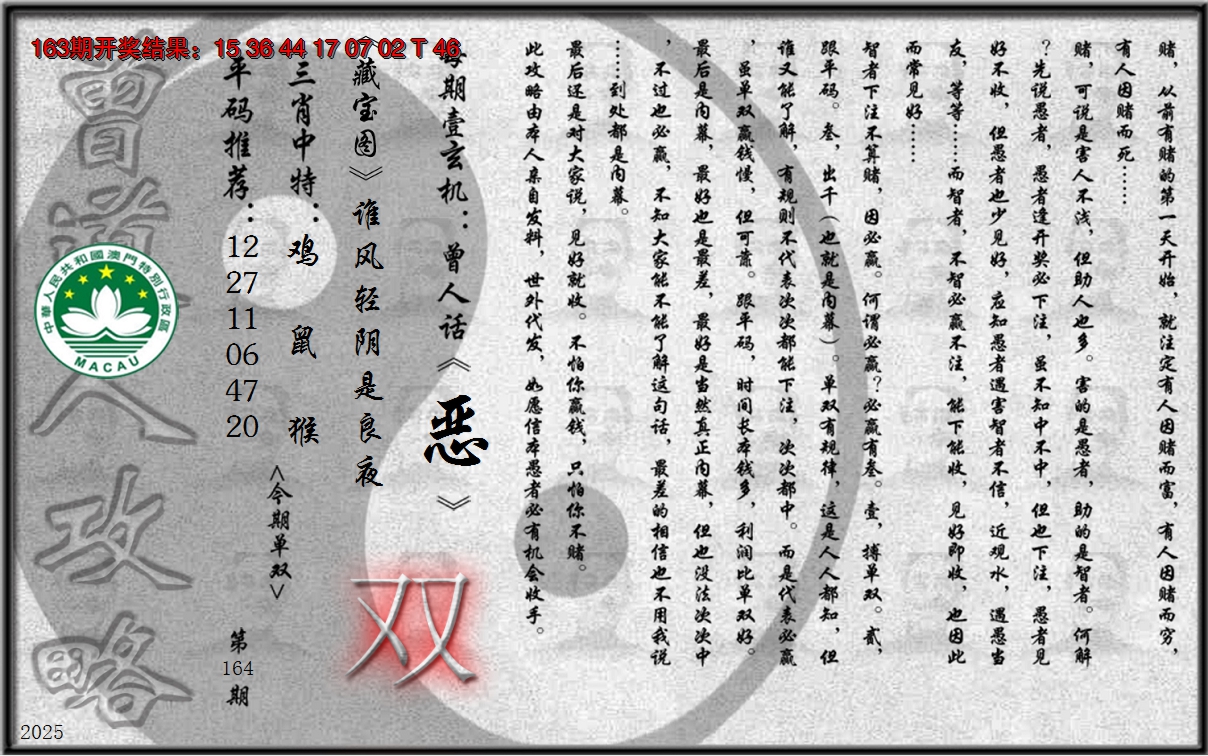 163期开奖结果：15 36 44 17 07 02 T 46
赌，从前有赌的第一天开始，就注定有人因赌而富，有人因赌而穷，
有人因赌而死……
赌，可说是害人不浅，但助人也多。害的是愚者，助的是智者。何解
？先说愚者，愚者逢开奖必下注，虽不知中不中，但也下注，愚者见
好不收，但愚者也少见好，应知愚者遇害智者不信，近观水，遇愚当
友，等等……而智者，不智必赢不注，能下能收，见好即收，也因此
而常见好……
智者下注不算赌，因必赢。何谓必赢？必赢有叁。壹，搏单双。贰，
跟平码。叁，出千（也就是内幕）。单双有规律，这是人人都知，但
谁又能了解，有规则不代表次次都能下注，次次都中。而是代表必赢
，虽单双赢钱慢，但可靠。跟平码，时间长本钱多，利润比单双好。
最后是内幕，最好也是最差，最好是当然真正内幕，但也没法次次中
，不过也必赢，不知大家能不能了解这句话，最差的相信也不用我说
……到处都是内幕。
最后还是对大家说，见好就收。不怕你赢钱，只怕你不赌。
此攻略由本人亲自发料，世外代发，如愿信本愚者必有机会收手。
每期壹玄机：曾人话《恶》
《藏宝图》谁风轻阴是良夜
双
三肖中特：鸡 鼠 猴
<今期单双>
平码推荐：12 27 11 06 47 20
第164期
曾道人攻略
中華人民共和國澳門特別行政區
MACAU
2025